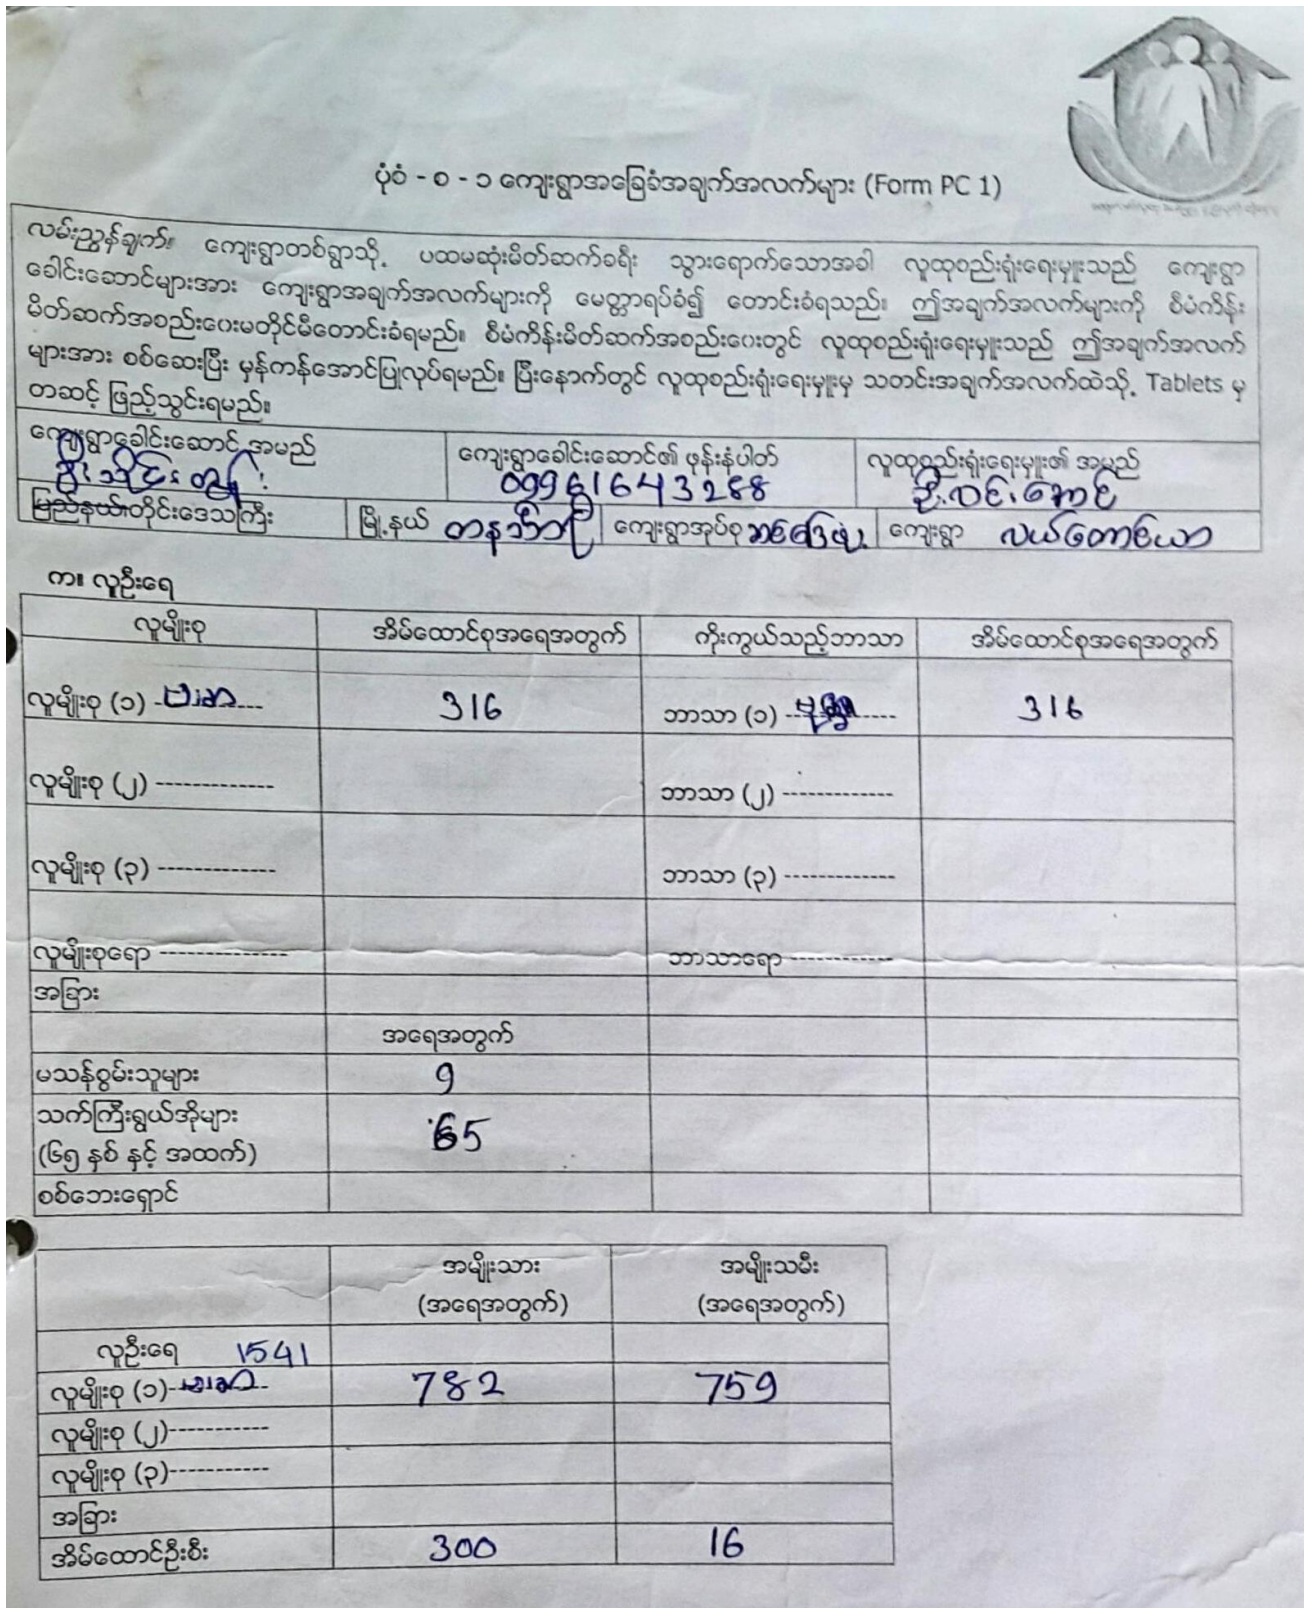 ပုံစံ - စ - ၁ ကျေးရွာအခြေခံအချက်အလက်များ (Form PC 1)
လမ်းညွှန်ချက်။ ကျေးရွာတစ်ရွာသို့ ပထမဆုံးမိတ်ဆက်ခရီး သွားရောက်သောအခါ လူထုစည်းရုံးရေးမှူးသည် ကျေးရွာ
ခေါင်းဆောင်များအား ကျေးရွာအချက်အလက်များကို မေတ္တာရပ်ခံ၍ တောင်းခံရသည်။ ဤအချက်အလက်များကို စီမံကိန်း
မိတ်ဆက်အစည်းဝေးမတိုင်မီတောင်းခံရမည်။ စီမံကိန်းမိတ်ဆက်အစည်းဝေးတွင် လူထုစည်းရုံးရေးမှူးသည် ဤအချက်အလက်
များအား စစ်ဆေးပြီး မှန်ကန်အောင်ပြုလုပ်ရမည်။ ပြီးနောက်တွင် လူထုစည်းရုံးရေးမှူးမှ သတင်းအချက်အလက်ထဲသို့ Tablets မှ
တဆင့် ဖြည့်သွင်းရမည်။
ကျေးရွာခေါင်းဆောင် အမည် ကျေးရွာခေါင်းဆောင်၏ ဖုန်းနံပါတ် လူထုစည်းရုံးရေးမှူး၏ အမည်
ဦးသိုင်းထွန်း 09961643288 ဦးဝင်းအောင်
ပြည်နယ်/တိုင်းဒေသကြီး မြို့နယ် တနင်္သာရီ ကျေးရွာအုပ်စု ကျေးရွာ လယ်တောင်ယာ
က။ လူဦးရေ
လူမျိုးစု အိမ်ထောင်စုအရေအတွက် ကိုးကွယ်သည့်ဘာသာ အိမ်ထောင်စုအရေအတွက်
လူမျိုးစု (၁) ဗမာ 316 ဘာသာ (၁) ဗုဒ္ဓ 316
လူမျိုးစု (၂) ဘာသာ (၂)
လူမျိုးစု (၃) ဘာသာ (၃)
လူမျိုးစုရော ဘာသာရော
အခြား
အရေအတွက်
မသန်စွမ်းသူများ 9
သက်ကြီးရွယ်အိုများ 65
(၆၅ နှစ် နှင့် အထက်)
စစ်ဘေးရှောင်
အမျိုးသား အမျိုးသမီး
(အရေအတွက်) (အရေအတွက်)
လူဦးရေ 1541
လူမျိုးစု (၁) ဗမာ 782 759
လူမျိုးစု (၂)
လူမျိုးစု (၃)
အခြား
အိမ်ထောင်ဦးစီး 300 16